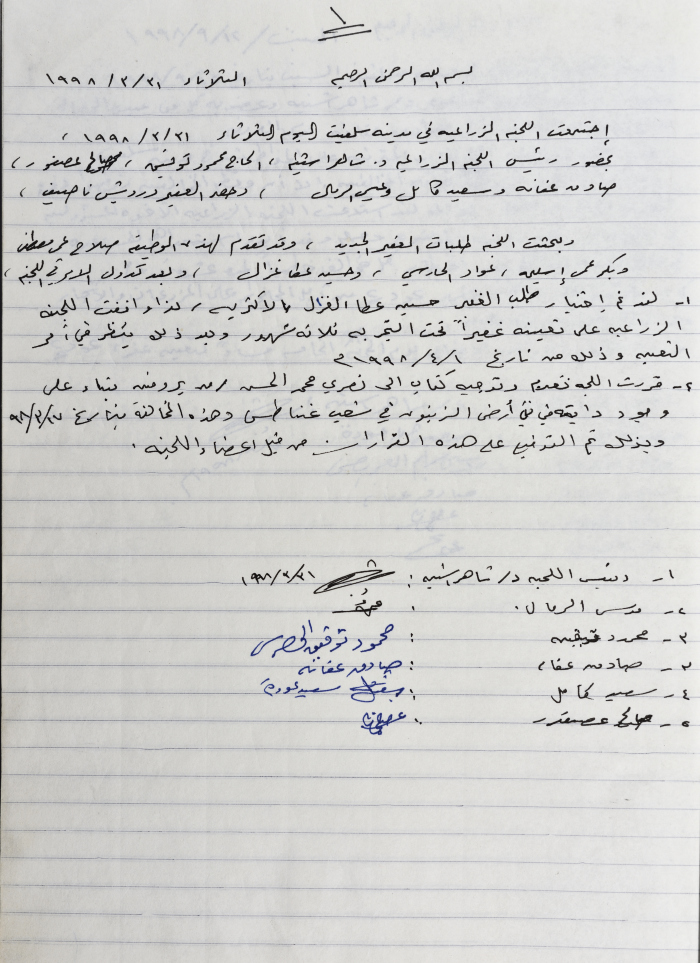 ١
بسم الله الرحمن الرحيم الثلاثاء ١٩٩٨/٣/٣١
إجتمعت اللجنه الزراعيه في مدينه سلفيت اليوم الثلاثاء ١٩٩٨/٣/٣١ ،
بحضور رئيس اللجنه الزراعيه د. شاهر اشتيه ، الحاج محمود توفيق ، صالح عصفور ،
صادق عفانه وسعيد كامل وعيسى الرمال ، وحضر الغفير درويش ناصيف ،
وبحثت اللجنه طلبات الغفير الجديد ، وقد تقدم لهذه الوظيفة صلاح عمر مصطفى
وبكر عمر إسليم ، عواد الحارس ، وحسين عطا غزال ، وبعد تداول الامر في اللجنه ،
١- لقد تم إختيار طلب الغفير حسين عطا الغزال بالأكثريه ، لذا وافقت اللجنه
الزراعيه على تعيينه غفيراً تحت التجربه ثلاثه شهور وبعد ذلك ينظر في أمر
التعيين وذلك من تاريخ ١٩٩٨/٤/١ م
٢- قررت اللجنه تقديم وتوجيه كتاب الى نصري محمد الحسن من بروقين بناء على
وجود دابته في أرض الزيتون في شعب وهذه المخالفة بتاريخ ٩٨/٣/٢٧
وبذلك تم التوقيع على هذه القرارات من قبل اعضاء اللجنه .
١- رئيس اللجنه د/ شاهر اشتيه : ١٩٩٨/٣/٣١
٢- عيسى الرمال . :
٣- محمود توفيق : محمود توفيق
٣- صادق عفانه : صادق عفانه
٤- سعيد كامل : سعيد
٥- صالح عصفور :